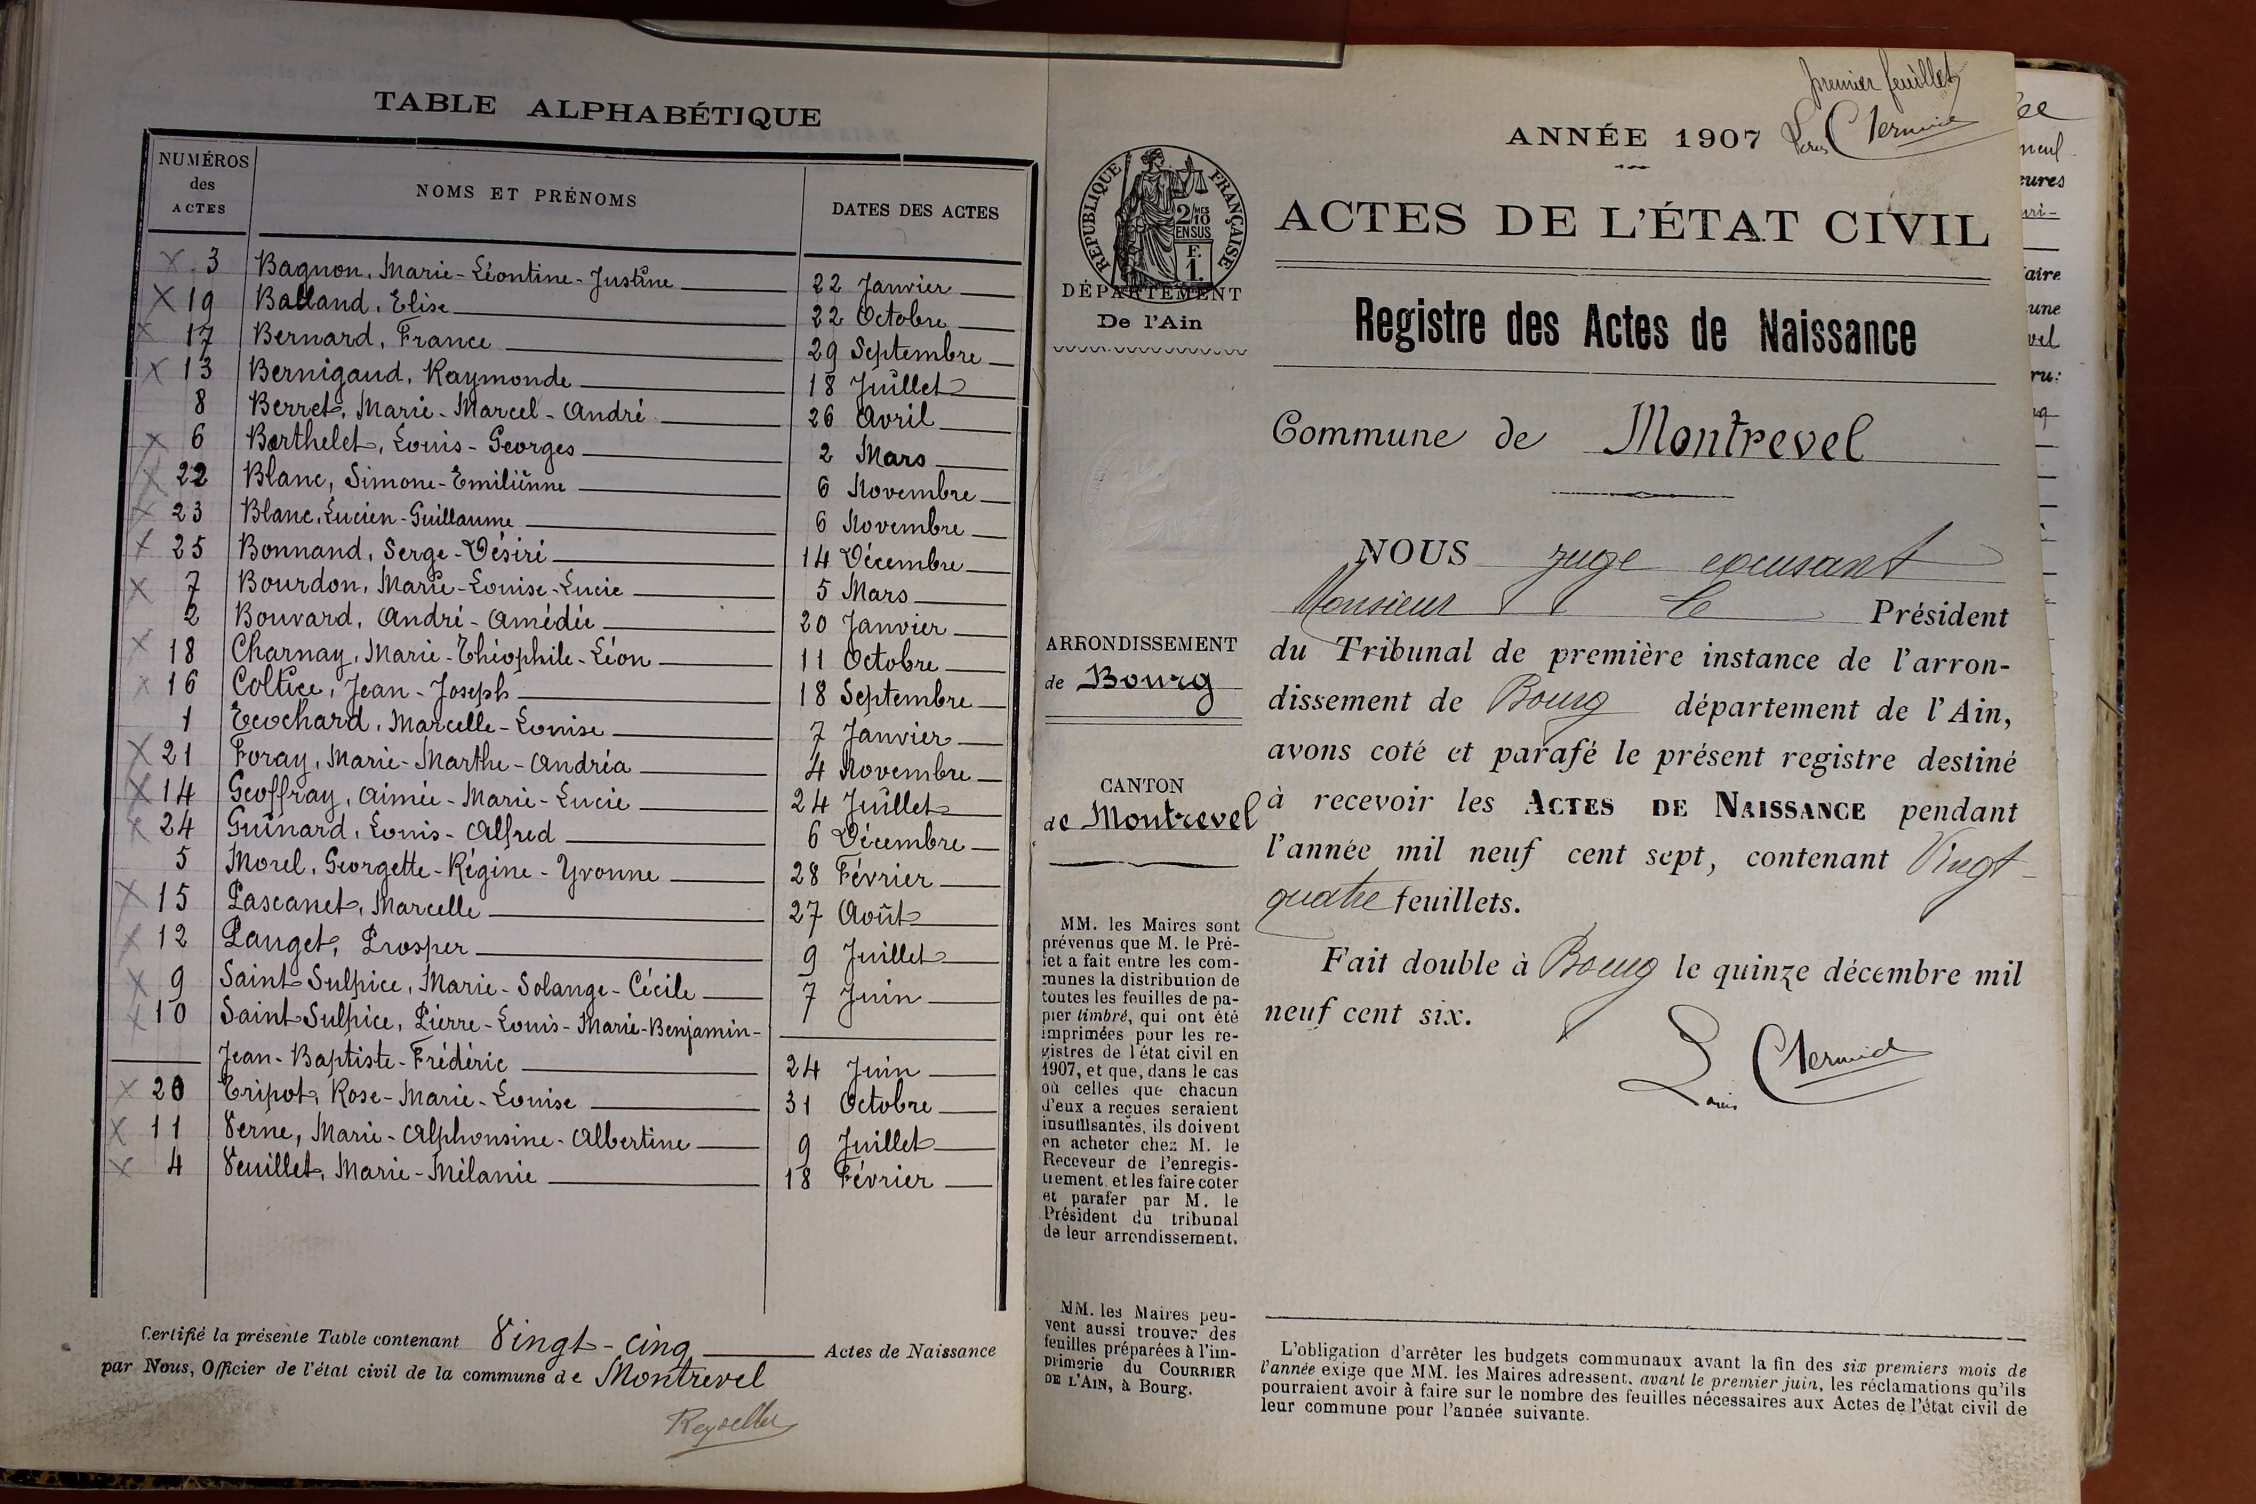 TABLE ALPHABÉTIQUE
NUMÉROS des ACTES | NOMS ET PRÉNOMS | DATES DES ACTES
3 Bagnon, Marie-Léontine-Justine 22 Janvier
19 Balland, Elise 22 Octobre
17 Bernard, France 29 Septembre
13 Bernigaud, Raymonde 18 Juillet
8 Berret, Marie-Marcel-André 26 Avril
6 Berthelet, Louis-Georges 2 Mars
22 Blanc, Simone-Emilienne 6 Novembre
23 Blanc, Lucien-Guillaume 6 Novembre
25 Bonnand, Serge-Désiré 14 Décembre
7 Bourdon, Marie-Louise-Lucie 5 Mars
2 Bouvard, André-Amédée 20 Janvier
18 Charnay, Marie-Théophile-Léon 11 Octobre
16 Coltice, Jean-Joseph 18 Septembre
1 Ecochard, Marcelle-Louise 7 Janvier
21 Foray, Marie-Marthe-Andréa 4 Novembre
14 Geoffray, Aimée-Marie-Lucie 24 Juillet
24 Guinard, Louis-Alfred 6 Décembre
5 Morel, Georgette-Régine-Yvonne 28 Février
15 Pascanet, Marcelle 27 Août
12 Pauget, Prosper 9 Juillet
9 Saint Sulpice, Marie-Solange-Cécile 7 Juin
10 Saint Sulpice, Pierre-Louis-Marie-Benjamin-
Jean-Baptiste-Frédéric 24 Juin
20 Tripot, Rose-Marie-Louise 31 Octobre
11 Verne, Marie-Alphonsine-Albertine 9 Juillet
4 Veuillet, Marie-Mélanie 18 Février
Certifié la présente Table contenant Vingt-cinq Actes de Naissance
par Nous, Officier de l'état civil de la commune de Montrevel
premier feuillet
ANNÉE 1907
Louis
RÉPUBLIQUE FRANÇAISE
2/10 MES
EN SUS
F.
1.
DÉPARTEMENT
De l'Ain
ARRONDISSEMENT
de Bourg
CANTON
de Montrevel
MM. les Maires sont
prévenus que M. le Pré-
fet a fait entre les com-
munes la distribution de
toutes les feuilles de pa-
pier timbré, qui ont été
imprimées pour les re-
gistres de l'état civil en
1907, et que, dans le cas
où celles que chacun
d'eux a reçues seraient
insuffisantes, ils doivent
en acheter chez M. le
Receveur de l'enregis-
trement, et les faire coter
et parafer par M. le
Président du tribunal
de leur arrondissement.
MM. les Maires peu-
vent aussi trouver des
feuilles préparées à l'im-
primerie du COURRIER
DE L'AIN, à Bourg.
ACTES DE L'ÉTAT CIVIL
Registre des Actes de Naissance
Commune de Montrevel
NOUS juge excusant
Monsieur le Président
du Tribunal de première instance de l'arron-
dissement de Bourg département de l'Ain,
avons coté et parafé le présent registre destiné
à recevoir les ACTES DE NAISSANCE pendant
l'année mil neuf cent sept, contenant Vingt-
quatre feuillets.
Fait double à Bourg le quinze décembre mil
neuf cent six.
Louis
L'obligation d'arrêter les budgets communaux avant la fin des six premiers mois de
l'année exige que MM. les Maires adressent, avant le premier juin, les réclamations qu'ils
pourraient avoir à faire sur le nombre des feuilles nécessaires aux Actes de l'état civil de
leur commune pour l'année suivante.